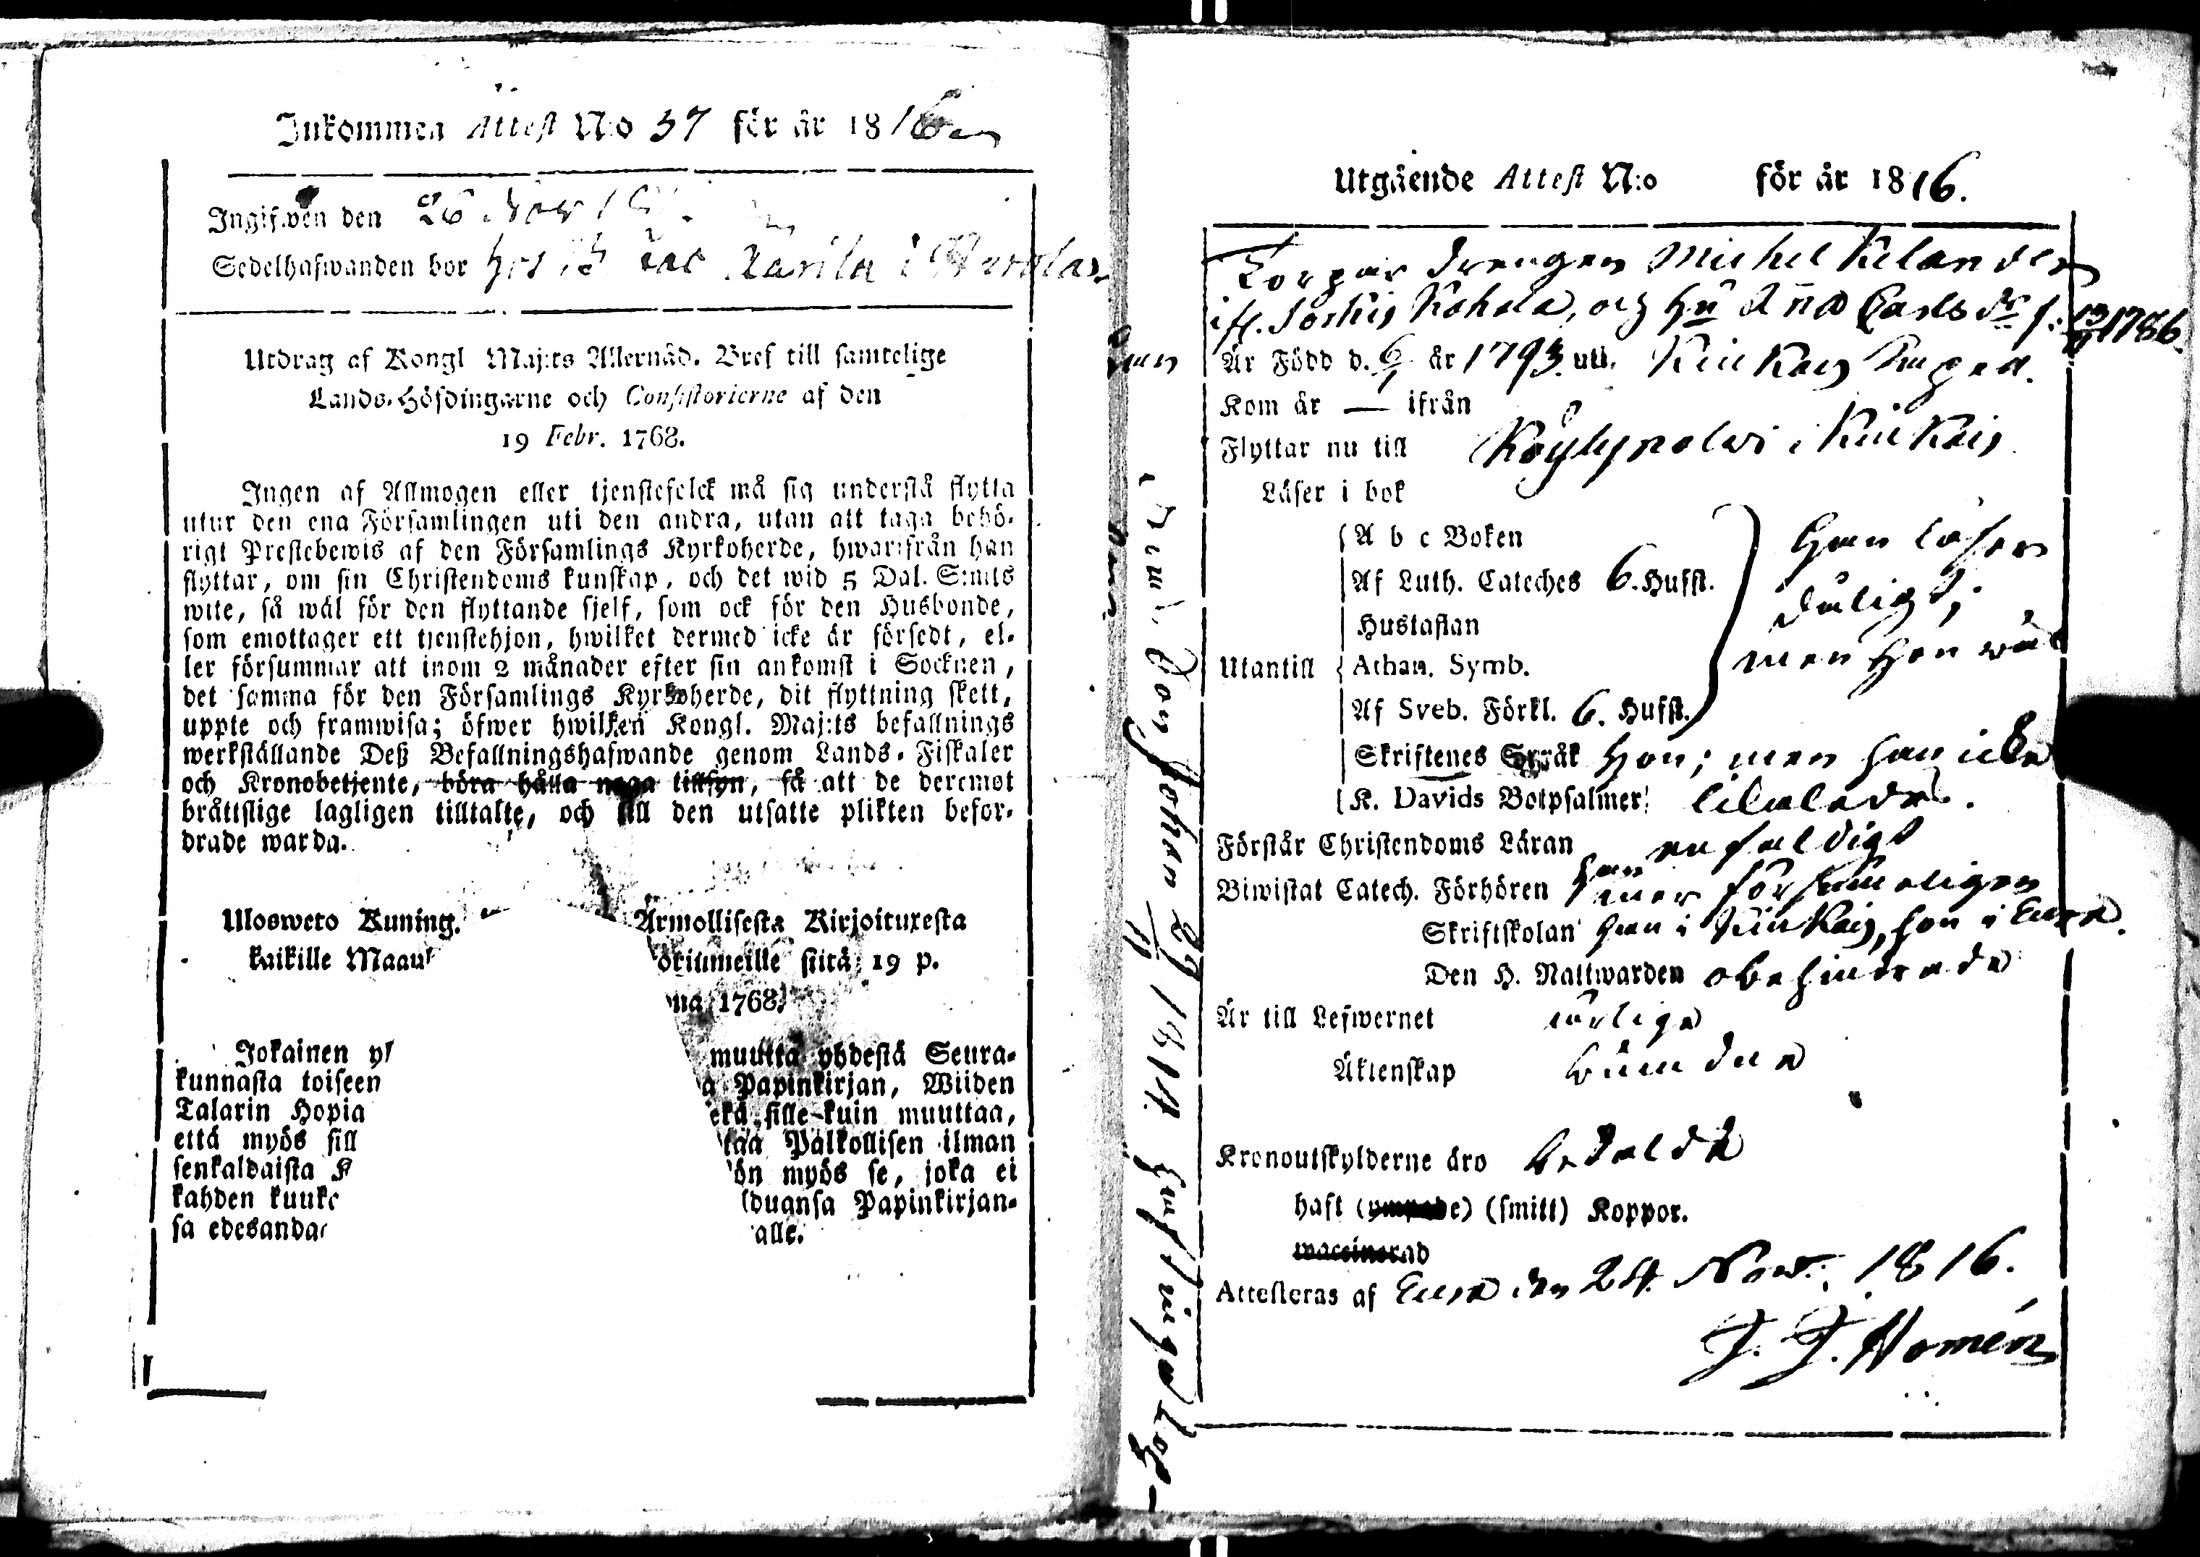 Inkommen Attest N:o 37 för år 1816
Ingifwen den 26 Nov
Sedelhafwanden bor hos
Utdrag af Kongl Maj:ts Allernåd. Bref till samtelige
Lands-Höfdingarne och Consistorierne af den
19 Febr. 1768.
Ingen af Allmogen eller tjenstefolck må sig understå flytta
utur den ena Församlingen uti den andra, utan att taga behö-
rigt Prestebewis af den Församlings Kyrkoherde, hwarifrån han
flyttar, om sin Christendoms kunskap, och det wid 5 Dal. S:mts
wite, så wäl för den flyttande sjelf, som ock för den Husbonde,
som emottager ett tjenstehjon, hwilket dermed icke är försedt, el-
ler försummar att inom 2 månader efter sin ankomst i Socknen,
det samma för den Församlings Kyrkoherde, dit flyttning skett,
uppte och framwisa; öfwer hwilken Kongl. Maj:ts befallnings
werkställande Deß Befallningshafwande genom Lands-Fiskaler
och Kronobetjente, böra hålla noga tillsyn, så att de deremot
bråttslige lagligen tilltalte, och till den utsatte plikten befor-
drade warda.
Ulosweto Kuning. Armollisesta Kirjoituxesta
kaikille Maau öritumeille siitä 19 p.
na 1768.
Jokainen yl muutta yhdestä Seura-
kunnasta toiseen a Papinkirjan, Wiiden
Talarin Hopia ekä sille kuin muuttaa,
että myös sill taa Palkollisen ilman
senkaldaista K ön myös se, joka ei
kahden kuuke lduansa Papinkirjan-
sa edesanda alle.
Utgående Attest N:o för år 1816.
Torpar drengen Michel Kelander
ifr. Kohela, och Hu Aña Carls dr f. 13 1786.
Är Född d. 6/1 år 1793. uti Kiukais Capell.
Kom år — ifrån
Flyttar nu till Köylypolwi i Kiukais
Läser i bok
A b c Boken Han läser
Af Luth. Cateches 6. Hufst. dåligt,
Hustaflan
Utantill Athan. Symb. men Hon wäl
Af Sveb. Förkl. 6. Hufst.
Skriftenes Språk Hon; men han icke
K. Davids Botpsalmer likaledes.
Förstår Christendoms Läran enfaldigt
Biwistat Catech. Förhören han mer försumeligen
Skriftskolan han i Kiukais, hon i Eura.
Den H. Nattwarden obehindrade
Är till Lefwernet ärlige
Äktenskap bundne
Kronoutskylderne äro betalda
haft (ympade) (smitt) Koppor.
waccinerad
Attesteras af Eura den 24 Nov. 1816.
J. J. Homén
son Johan 29/11 1814